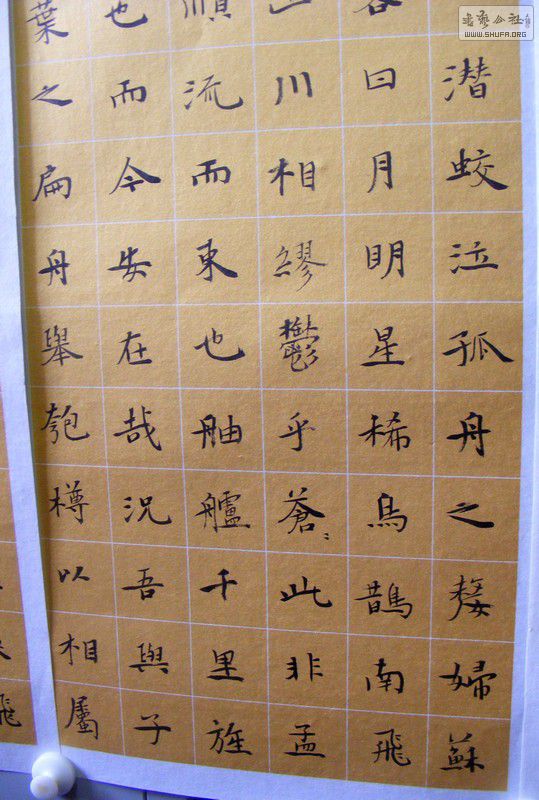 潜蛟泣孤舟之嫠婦蘇
曰月明星稀烏鵲南飛
川相繆鬱乎蒼々此非孟
順流而東也舳艫千里旌
也而今安在哉況吾與子
葉之扁舟舉匏樽以相屬
飛
書藝公社
WWW.SHUFA.ORG